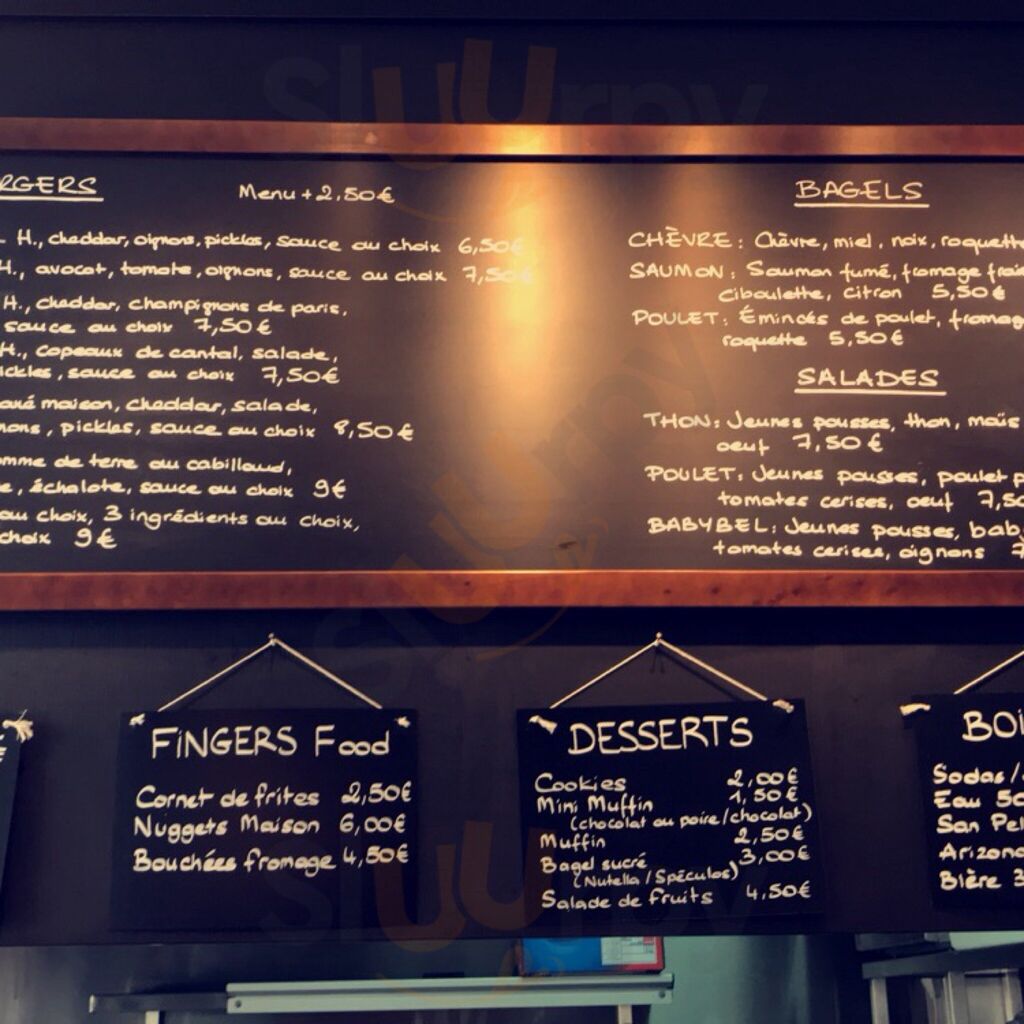 RGERS
Menu + 2,50€
H., cheddar, oignons, pickles, sauce au choix 6,50€
H., avocat, tomate, oignons, sauce au choix 7,50€
H., cheddar, champignons de paris,
sauce au choix 7,50€
H., copeaux de cantal, salade,
ickles, sauce au choix 7,50€
ané maison, cheddar, salade,
nons, pickles, sauce au choix 8,50€
omme de terre au cabillaud,
e, échalote, sauce au choix 9€
au choix, 3 ingrédients au choix,
choix 9€
BAGELS
CHÈVRE : Chèvre, miel, noix, roquette
SAUMON : Saumon fumé, fromage frai
Ciboulette, citron 5,50€
POULET : Émincés de poulet, fromag
roquette 5,50€
SALADES
THON : Jeunes pousses, thon, maïs
oeuf 7,50€
POULET : Jeunes pousses, poulet p
tomates cerises, oeuf 7,50
BABYBEL : Jeunes pousses, bab
tomates cerises, oignons 7
FiNGERS Food
Cornet de frites 2,50€
Nuggets Maison 6,00€
Bouchées fromage 4,50€
DESSERTS
Cookies 2,00€
Mini Muffin 1,50€
(chocolat ou poire/chocolat)
Muffin 2,50€
Bagel sucré 3,00€
(Nutella / Spéculos)
Salade de fruits 4,50€
BOI
Sodas /
Eau 50
San Pel
Arizona
Bière 3
sluurpy
sluurpy
sluurpy